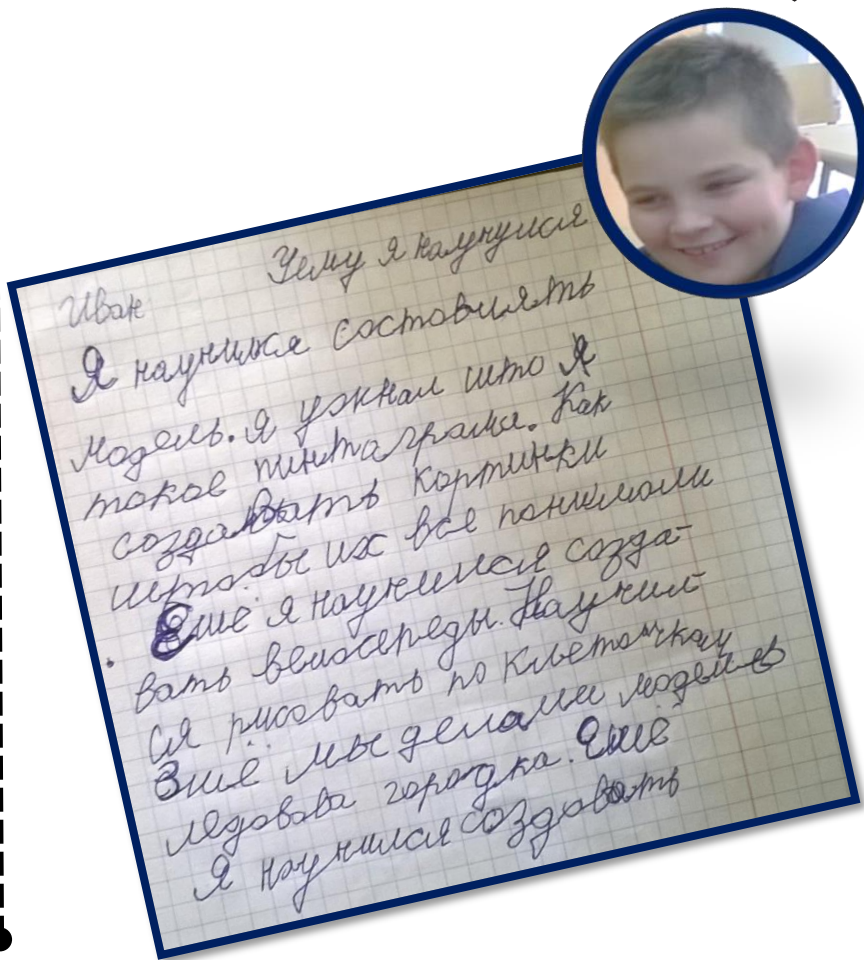 Чему я научился
Иван
Я научился состовлять
модель. Я узнал што Я
токое пинтаграма. Как
создавать кортинки
штобы их все понимоли
Ешё я научился созда-
вать велосепеды. Научил-
ся рисовать по клеточкам
Ешё мы делали модель
ледовова городка. Ешё
Я научился создовать